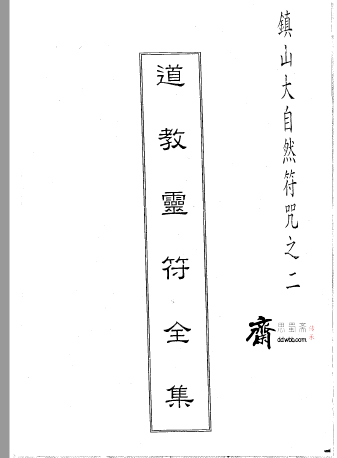 鎮山大自然符咒之二
道教靈符全集
齋
思蜀齋
ddwbb.com